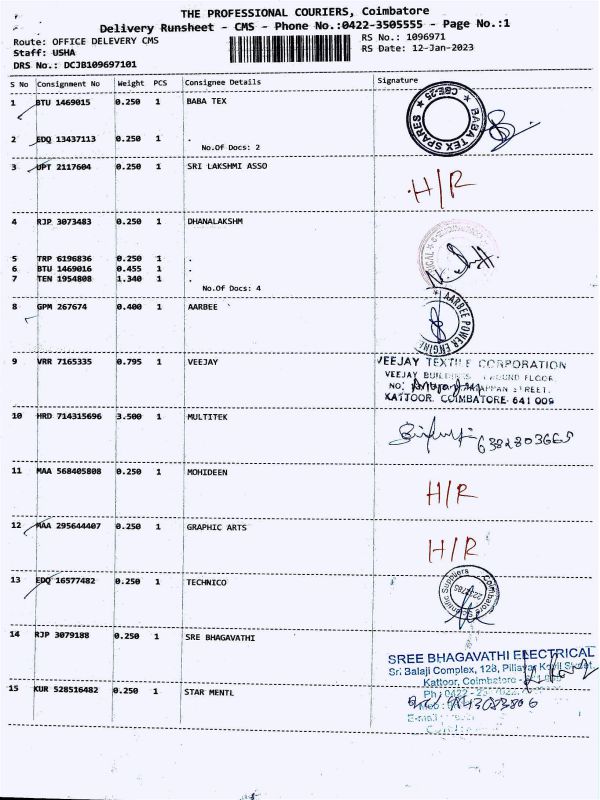 THE PROFESSIONAL COURIERS, Coimbatore
Delivery Runsheet - CMS - Phone No.:0422-3505555 - Page No.:1
Route: OFFICE DELEVERY CMS
RS No.: 1096971
Staff: USHA
RS Date: 12-Jan-2023
DRS No.: DCJB109697101
S No Consignment No Weight PCS Consignee Details Signature
1 BTU 1469015 0.250 1 BABA TEX
BABA TEX SPARES ★ CBE-25 ★
2 EDQ 13437113 0.250 1 .
No.Of Docs: 2
3 UPT 2117604 0.250 1 SRI LAKSHMI ASSO
H/R
4 RJP 3073483 0.250 1 DHANALAKSHM
5 TRP 6196836 0.250 1 .
6 BTU 1469016 0.455 1 .
7 TEN 1954808 1.340 1 .
No.Of Docs: 4
8 GPM 267674 0.400 1 AARBEE
AARBEE POWER ENGINE
9 VRR 7165335 0.795 1 VEEJAY
VEEJAY TEXTILE CORPORATION
VEEJAY BUILDINGS GROUND FLOOR
NO: STREET.
KATTOOR. COIMBATORE-641 009
10 HRD 714315696 3.500 1 MULTITEK
6382803665
11 MAA 568405808 0.250 1 MOHIDEEN
H/R
12 MAA 295644407 0.250 1 GRAPHIC ARTS
H/R
13 EDQ 16577482 0.250 1 TECHNICO
Scientific Suppliers Coimbatore
14 RJP 3079188 0.250 1 SRE BHAGAVATHI
SREE BHAGAVATHI ELECTRICAL
Sri Balaji Complex, 128, Pillayar Kovil Street
Kattoor, Coimbatore -
Ph: 0422 -
15 KUR 528516482 0.250 1 STAR MENTL
Mob:
E-mail :